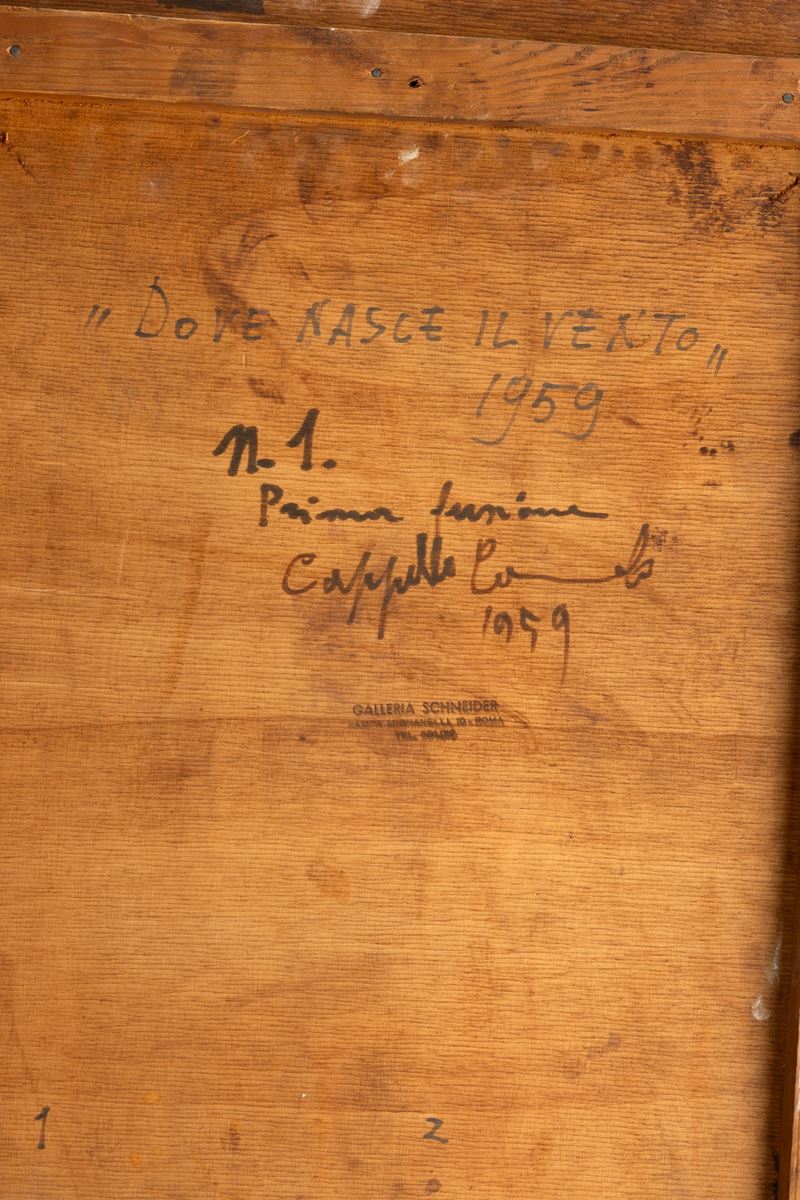 „ DOVE NASCE IL VENTO „
1959
n. 1.
Prima fusione
Cappello Carmelo
1959
GALLERIA SCHNEIDER
RAMPA MIGNANELLI, 10 - ROMA
TEL.
1
2